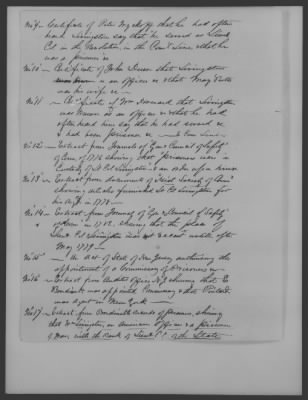 No 9 - Certificate of Peter Wyckoff that he had often
heard Livingston say that he served as Lieut
Col in the Revolution in the Conl Line & that he
was a prisoner
No 10 - Certificate of John Dunn that Livingston
was an officer & that Mary
was his wife
No 11 - Certificate of Wm that Livingston
was known as an officer & that he had
often heard him say that he had served &
had been prisoner Conn Line
No 12 - Extract from Journals of Genl Council of Safety
of Conn of 1778 showing that prisoners were in
Custody of Lt Col Livingston as an officer
No 13 - Extract from document of Hist Society of Conn
showing articles furnished Lt Co Livingston for
his in 1778
No 14 - Extract from Journal of Gov & Council of Safety
of Conn in 1782, showing that the place of
Lieut Col Livingston was not vacant until after
May 1779
No 15 - An Act of State of New Jersey authorizing the
appointment of a Commissary of Prisoners
No 16 - Extract from Auditors office N.J. showing that E
Boudinot was appointed Commissary & that Pintard
was agent in New York
No 17 - Extract from Boudinots records of prisoners, showing
that Wm Livingston, an American officer & a prisoner
of War, with the rank of Lieut Col of the State